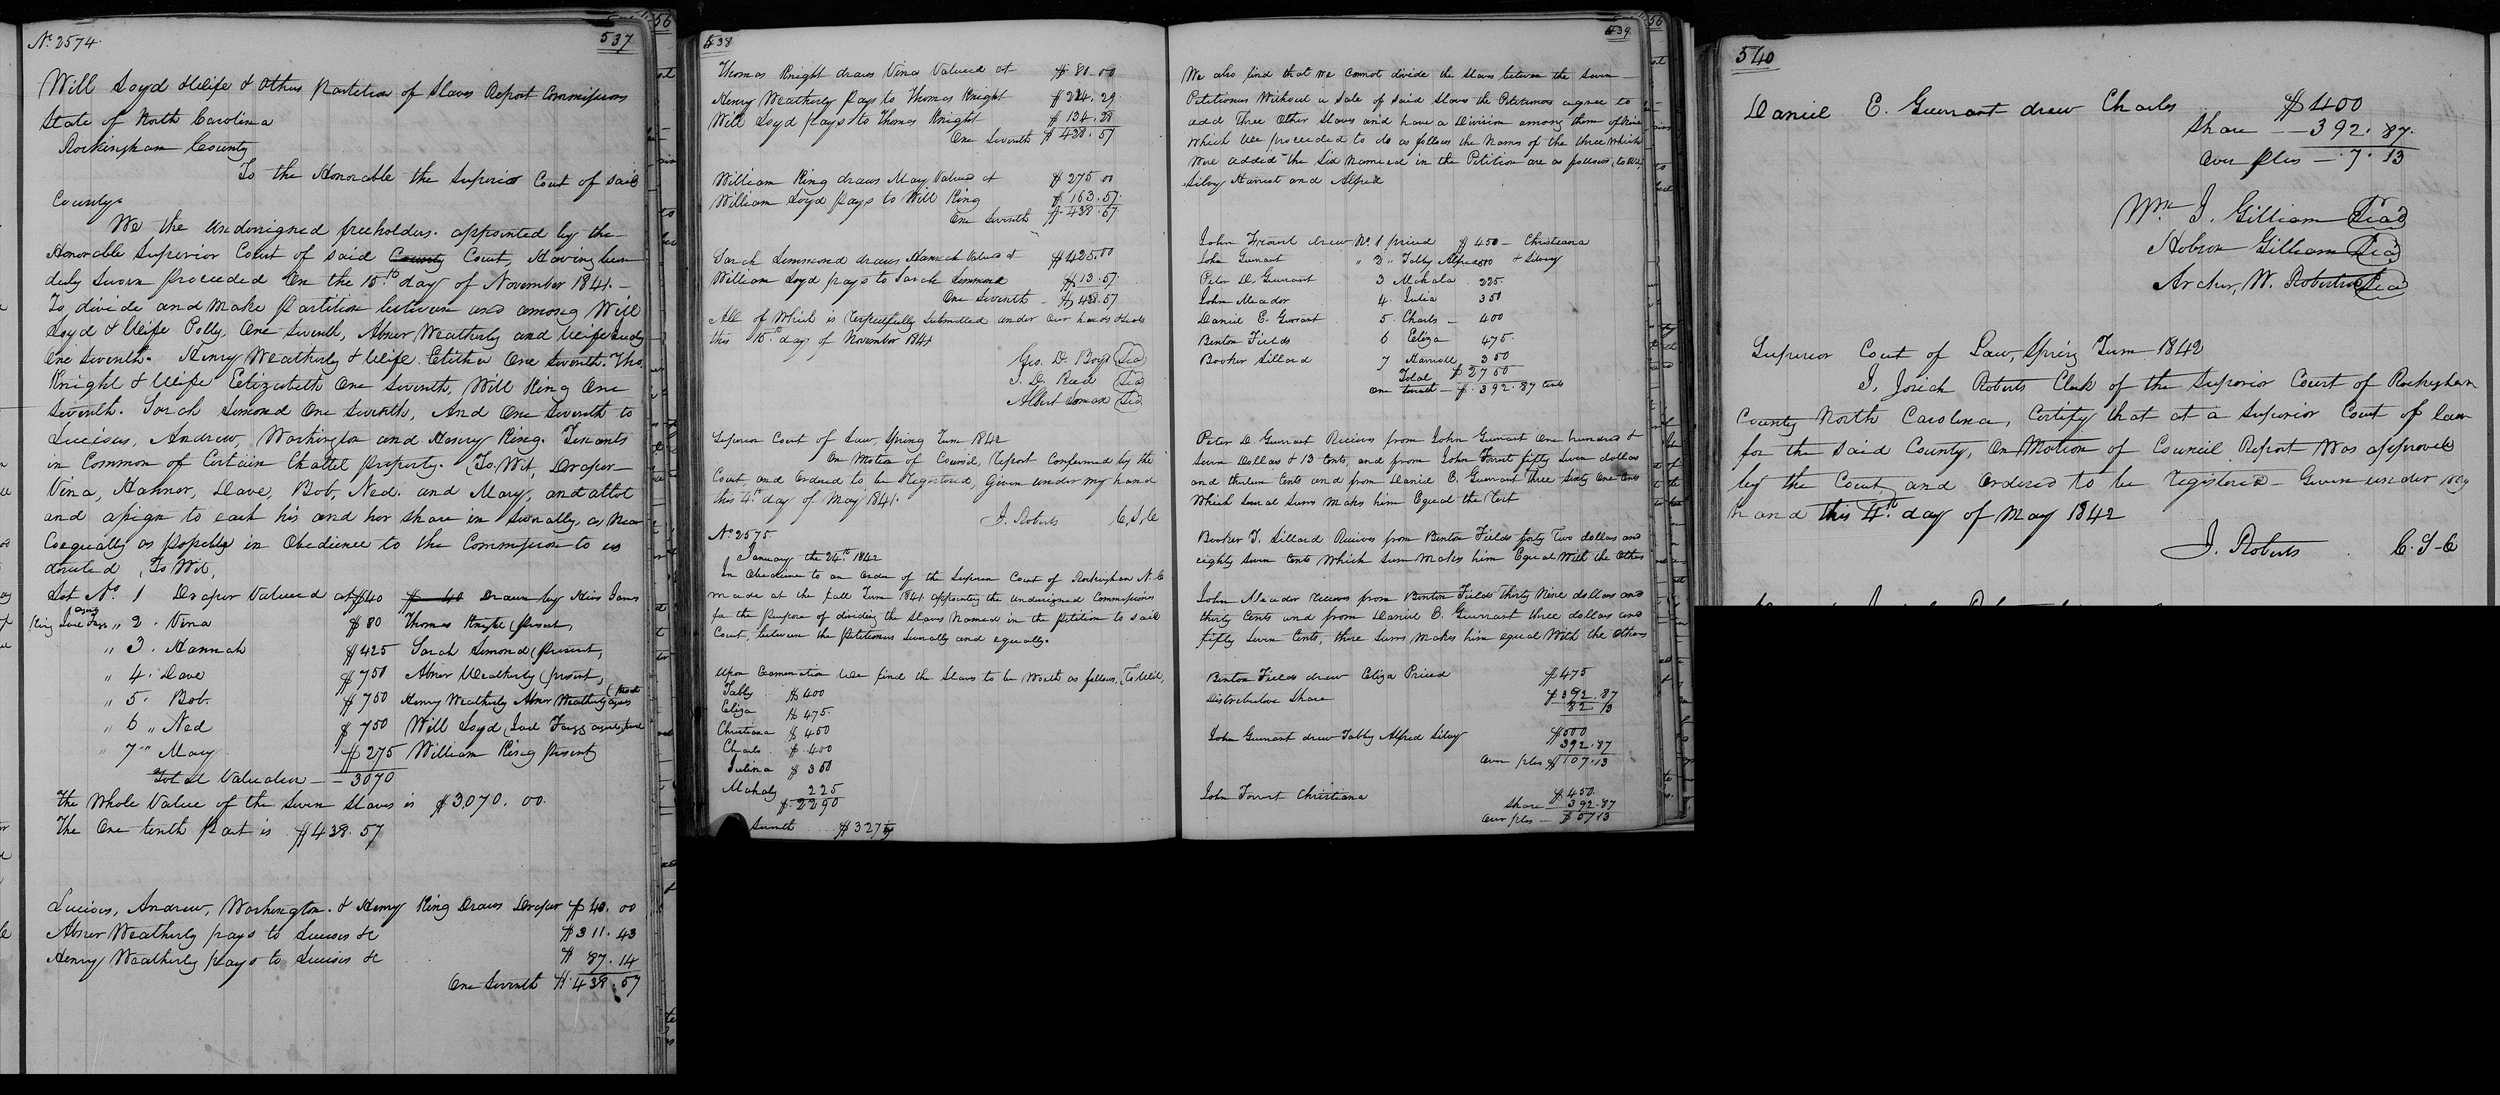 No. 2574
537
Will Loyd & Wife & Others Partition of Slaves Report Commissioners
State of North Carolina
Rockingham County
To the Honorable the Superior Court of said
County
We the undersigned freeholders appointed by the
Honorable Superior Court of said County Court, Having been
duly sworn proceeded on the 15th day of November 1841.
To divide and make partition between and among Will
Loyd & Wife Polly, One Seventh, Abner Weatherly and Wife
One Seventh. Henry Weatherly & Wife One Seventh. Tho.
Knight & Wife Elizabeth One Seventh, Will King One
Seventh. Sarah Simond One Seventh, And One Seventh to
Lucious, Andrew, Washington and Henry King. Tenants
in Common of Certain Chattel property. To Wit, Draper
Vina, Hannor, Dave, Bob, Ned. and Mary, and allot
and assign to each his and her share in Severalty, as near
Coequally as possible in Obedience to the Commission to us
directed, To Wit,
Lot No. 1 Draper Valued at $40 $ 40 Drawn by
King " 2. Vina $80 Thomas Knight (present,
" 3. Hannah $425 Sarah Simond (present,
" 4. Dave $750 Abner Weatherly (present,
" 5. Bob. $750 Henry Weatherly Abner Weatherly agent (present
" 6 " Ned $750 Will Loyd
" 7 " Mary $275 William King present
Total Valuation - 3070
The Whole Value of the Seven Slaves is $3070.00.
The One tenth Part is $438.57
Lucious, Andrew, Washington & Henry King Draws Draper $40.00
Abner Weatherly pays to Lucious &c $311.43
Henry Weatherly pays to Lucious &c $87.14
One Seventh $438.57
538
Thomas Knight draws Vina Valued at $80.00
Henry Weatherly Pays to Thomas Knight $224.29
Will Loyd pays to Thomas Knight $134.28
One Seventh $438.57
William King draws Mary Valued at $275.00
William Loyd pays to Will King $163.57
One Seventh $438.57
Sarah Simmond draws Hannah Valued at $425.00
William Loyd pays to Sarah Simmond $13.57
One Seventh $438.57
All of Which is respectfully submitted under our hands & seals
this 15th day of November 1841
Geo. D. Boyd (Seal)
Albert (Seal)
Superior Court of Law, Spring Term 1842
On Motion of Council, report Confirmed by the
Court, and Ordered to be Registered, Given under my hand
this 4th day of May 1841.
J. Roberts C.S.C
No. 2575
January the 24th 1842
In Obedience to an Order of the Superior Court of Rockingham N.C
made at the fall Term 1841 appointing the undersigned Commissioners
for the Purpose of dividing the Slaves Named in the Petition to said
Court, between the Petitioners severally and equally.
Upon Examination We find the Slaves to be Worth as follows, To Wit,
Tabby $400
Eliza $475.
Christiana $450
Charls $400
Julina $350
Mahaly 225
$2290
Seventh $327
539
We also find that we cannot divide the Slaves between the Seven
Petitioners Without a Sale of said Slaves the Petitioners agree to
add three Other Slaves and have a Division among them of Nine
Which We proceeded to do as follows the Names of the three Which
Were added the Six Named in the Petition are as follows, to Wit,
Silvy Harriet and Alfred
John Forrest drew No. 1 priced $450 - Christiana
John Guerrant " 2 " Tabby Alfred 500 + Silvey
Peter D. Guerrant 3 Mahala 225.
John Meador 4. Julia 350
Daniel E. Guerrant 5. Charls - 400
Benton Fields 6 Eliza 475.
Booker Sillard 7 Harriett 350
Total $2750
One tenth - $392.87 cents
Peter D. Guerrant Recives from John Guerrant One hundred &
Seven Dollars & 13 Cents, and from John Forrest fifty Seven dollars
and thirteen Cents and from Daniel E. Guerrant Three Sixty One Cents
Which Several Sums Makes him Equal the Rest
Booker T. Sillard Recives from Benton Fields forty Two dollars and
eighty Seven Cents Which Sum Makes him Equal With the Others
John Meador recives from Benton Fields Thirty Nine dollars and
thirty Cents and from Daniel E. Guerrant three dollars and
fifty Seven Cents, these Sums Makes him equal With the Others
Benton Fields drew Eliza Priced $475
Distributive Share $392.87
82.13
John Guerrant drew Tabby Alfred Silvy $500
392.87
Over plus $107.13
John Forrest Christiana $450.
Share - 392.87
Over plus - $57.13
540
Daniel E. Guerrant drew Charls $400
Share - 392.87.
Over plus - 7.13
Wm. J. Gilliam (Seal)
Hobson Gilliam (Seal)
Archer, W. Robertson (Seal)
Superior Court of Law, Spring Term 1842
I, Josiah Roberts Clerk of the Superior Court of Rockingham
County North Carolina, Certify that at a Superior Court of law
for the said County, On Motion of Council Report Was approved
by the Court, and Ordered to be registered - Given under my
hand this 4th day of May 1842
J. Roberts C.S.C